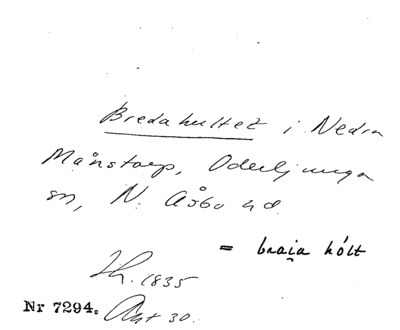 Bredahultet i Nedra
Månstorp, Oderljunga
sn, N. Åsbo hd.
= braia hólt
Lh. 1835
Akt 30.
Nr 7294.